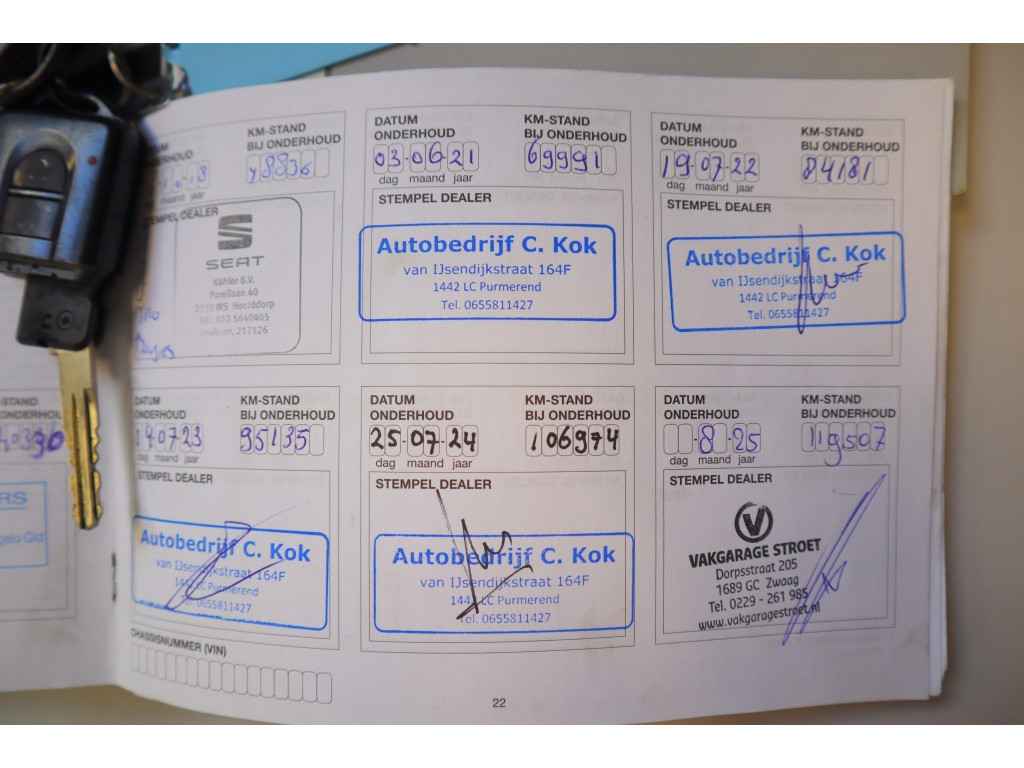 KM-STAND
BIJ ONDERHOUD
jaar
STEMPEL DEALER
SEAT
DATUM
ONDERHOUD
KM-STAND
BIJ ONDERHOUD
03-06-21
69991
dag maand jaar
STEMPEL DEALER
Autobedrijf C. Kok
van IJsendijkstraat 164F
1442 LC Purmerend
Tel. 0655811427
DATUM
ONDERHOUD
KM-STAND
BIJ ONDERHOUD
19-07-22
84181
dag maand jaar
STEMPEL DEALER
Autobedrijf C. Kok
van IJsendijkstraat 164F
1442 LC Purmerend
Tel. 0655811427
DATUM
ONDERHOUD
KM-STAND
BIJ ONDERHOUD
95135
maand jaar
STEMPEL DEALER
Autobedrijf C. Kok
van IJsendijkstraat 164F
1442 LC Purmerend
Tel. 0655811427
DATUM
ONDERHOUD
KM-STAND
BIJ ONDERHOUD
25-07-24
106974
dag maand jaar
STEMPEL DEALER
Autobedrijf C. Kok
van IJsendijkstraat 164F
1442 LC Purmerend
Tel. 0655811427
DATUM
ONDERHOUD
KM-STAND
BIJ ONDERHOUD
-8-25
119507
dag maand jaar
STEMPEL DEALER
VAKGARAGE STROET
Dorpsstraat 205
1689 GC Zwaag
Tel. 0229 - 261 985
www.vakgaragestroet.nl
CHASSISNUMMER (VIN)
22